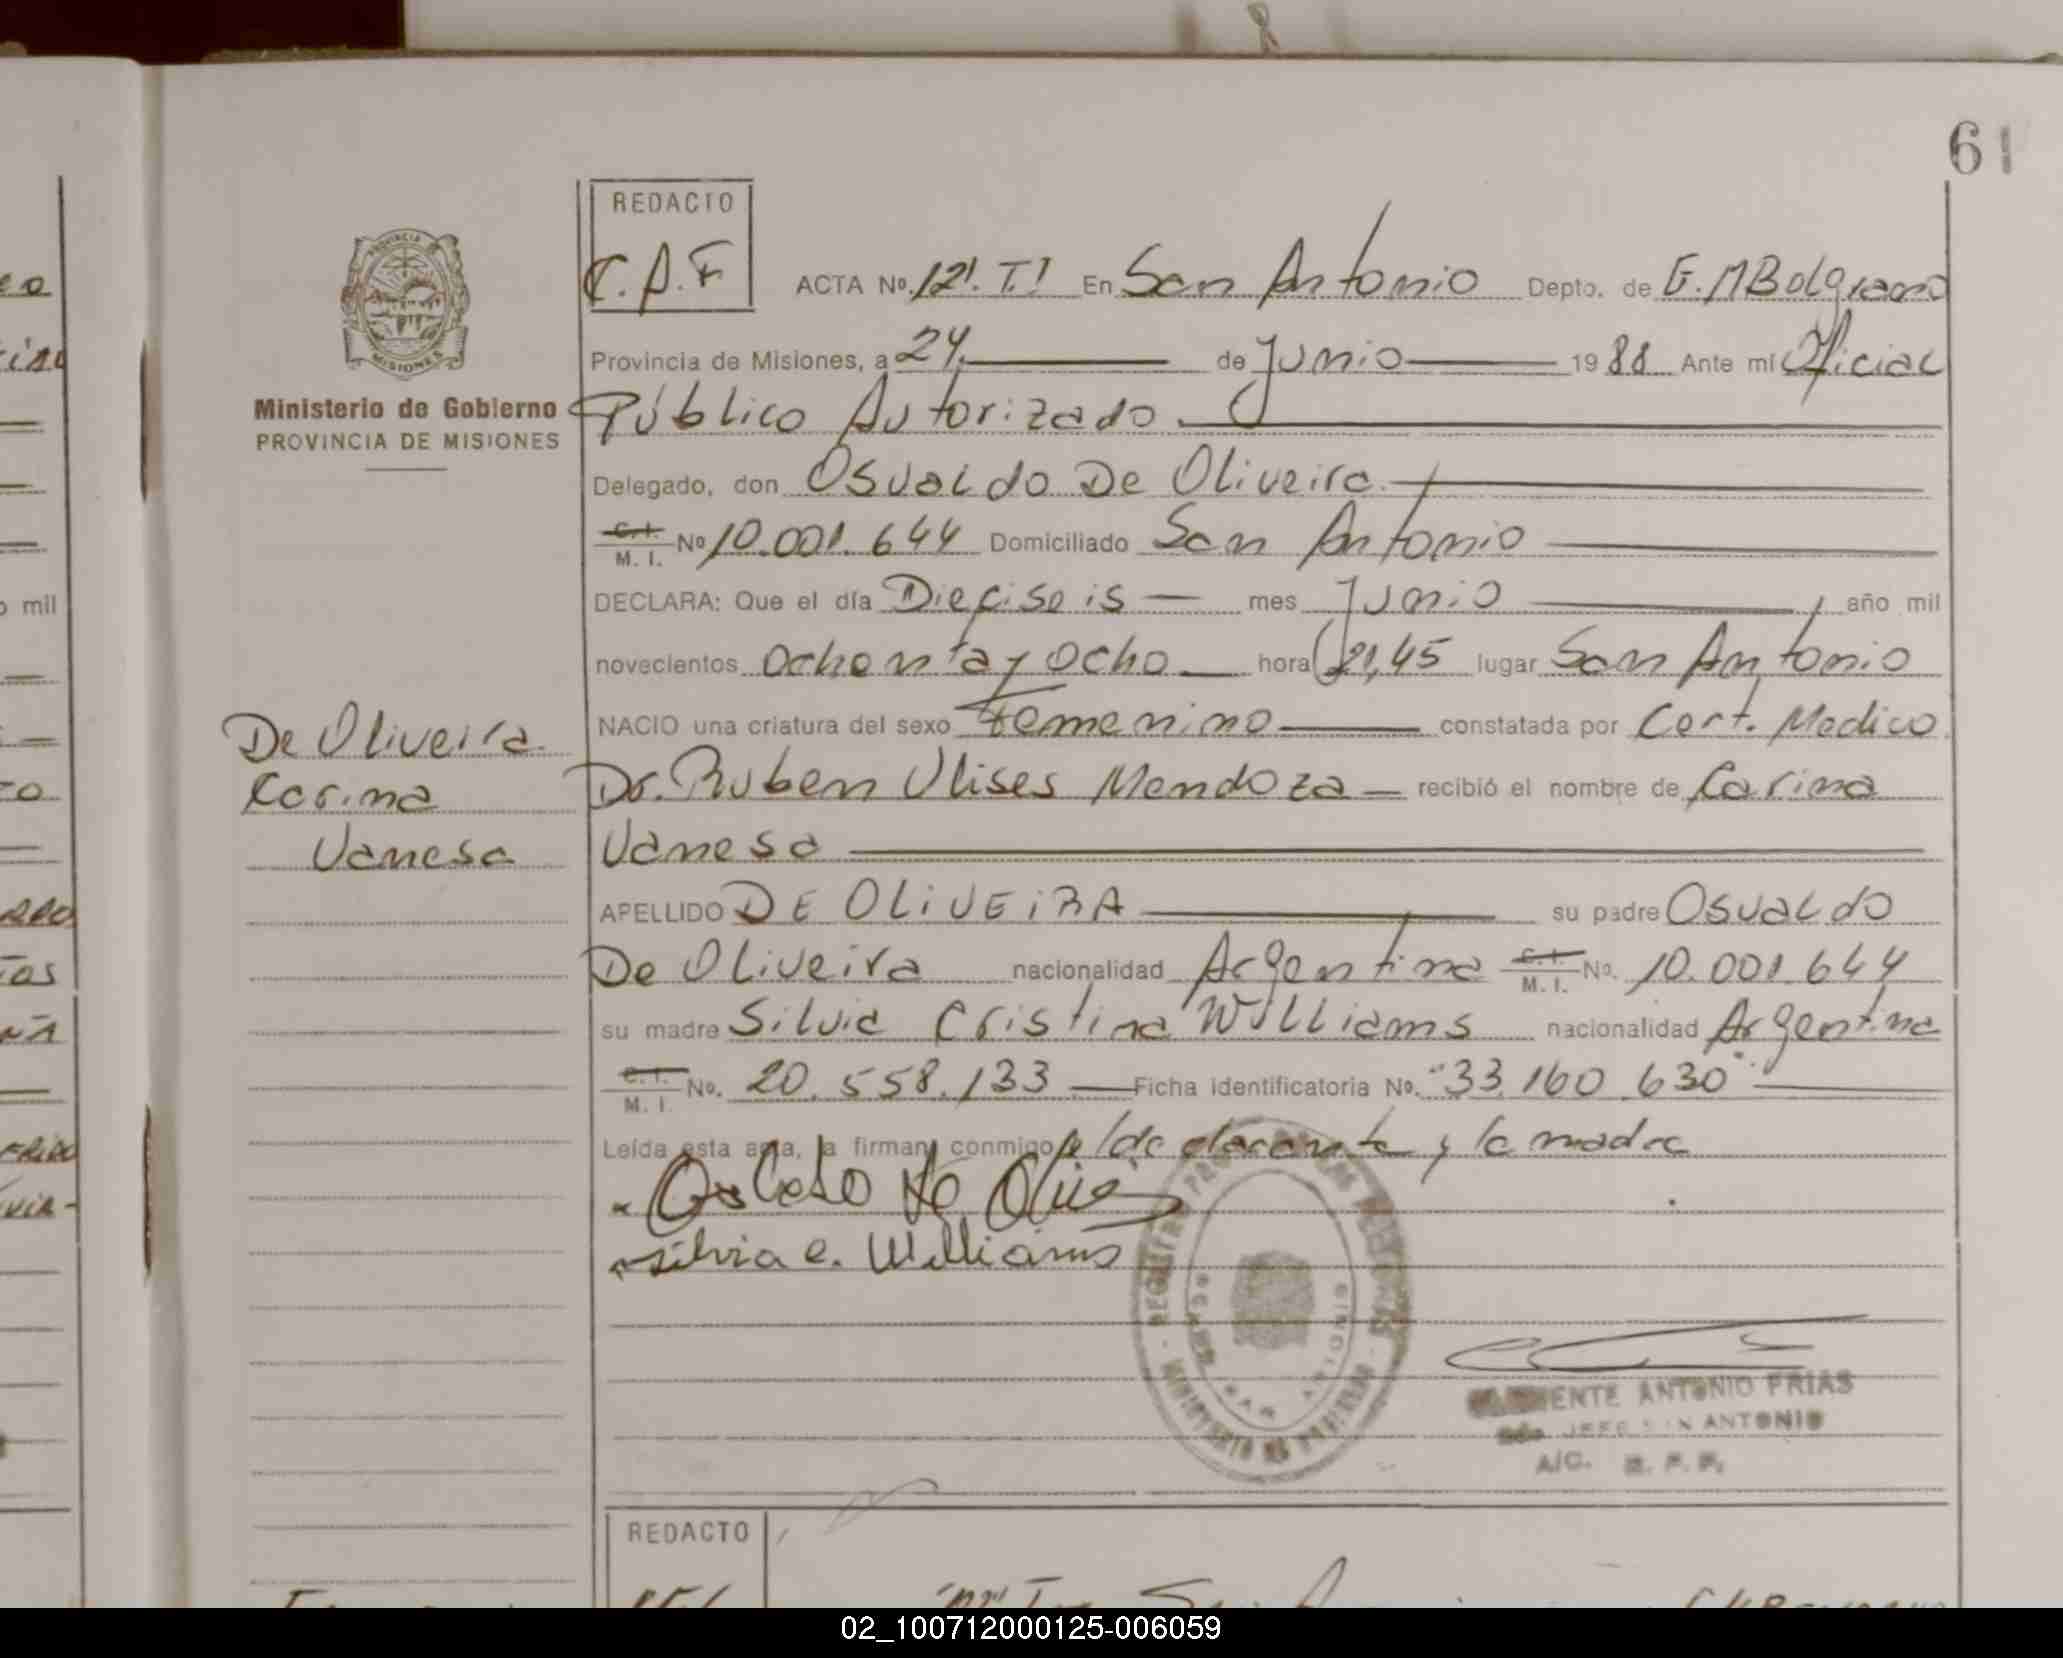 61
REDACTO
C.A.F
ACTA Nº. 121. T.I En San Antonio Depto. de G.MBelgrano
PROVINCIA
MISIONES
Provincia de Misiones, a 24, de Junio 1988 Ante mí Oficial
Ministerio de Gobierno
PROVINCIA DE MISIONES
Público Autorizado
Delegado, don Osvaldo De Oliveira.
C.I. M. I. Nº 10.001.644 Domiciliado San Antonio
DECLARA: Que el día Dieciseis mes Junio año mil
novecientos ochenta y ocho hora 21,45 lugar San Antonio
NACIO una criatura del sexo Femenino constatada por Cert. Medico
Dr. Ruben Ulises Mendoza recibió el nombre de Carina
Vanesa
De Oliveira
Carina
Vanesa
APELLIDO DE OLiVEiRA su padre Osvaldo
De Oliveira nacionalidad Argentina C.I. M. I. No. 10.001.644
su madre Silvia Cristina Williams nacionalidad Argentina
C.I. M. I. No. 20.558.133 Ficha Identificatoria No. "33.160.630"
Leída esta acta, la firman conmigo declarante y la madre
Osvaldo de Olivei
silvia C. Williams
ANTONIO FRIAS
JEFE SAN ANTONIO
A/C.
REDACTO
mil
02_100712000125-006059